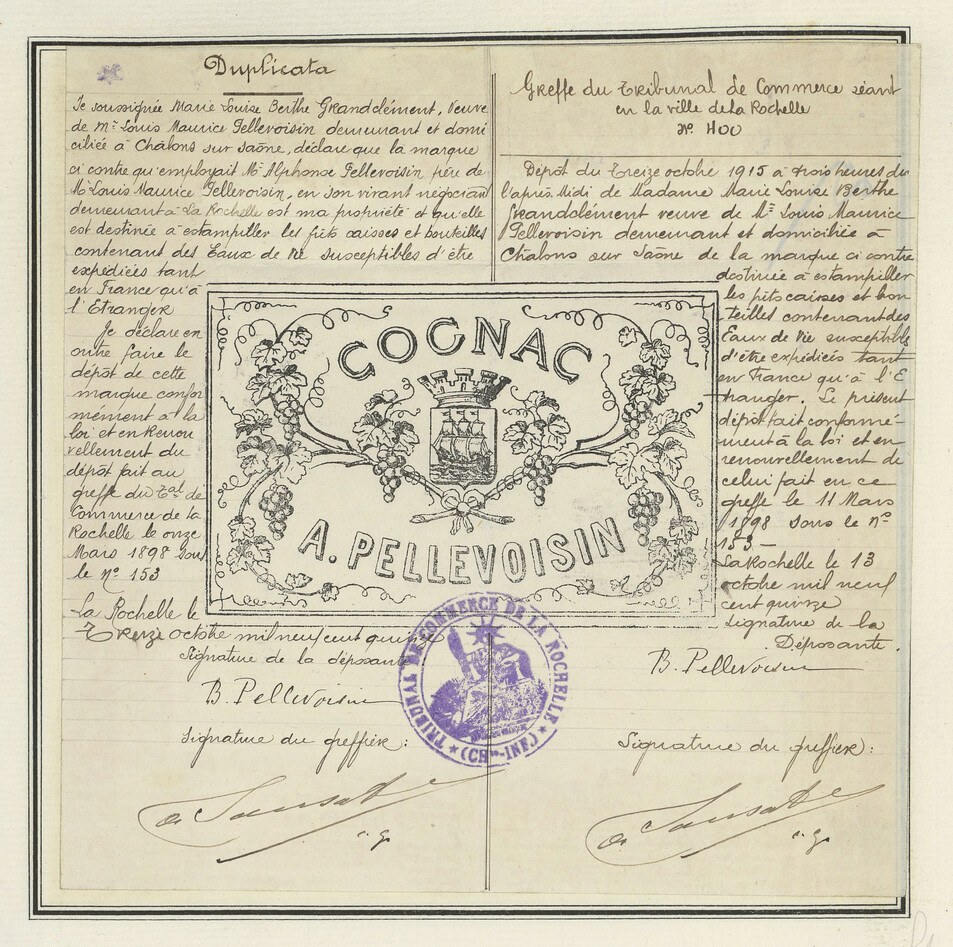 Duplicata
Je soussignée Marie Louise Berthe Grandclément, Veuve
de Mr Louis Maurice Pellevoisin demeurant et domi
ciliée à Châlons sur Saône, déclare que la marque
ci contre qu'employait Mr Alphonse Pellevoisin père de
Mr Louis Maurice Pellevoisin, en son vivant négociant
demeurant à La Rochelle est ma propriété et qu'elle
est destinée à estampiller les fûts caisses et bouteilles
contenant des Eaux de Vie susceptibles d'être
expédiées tant
en France qu'à
l'Etranger
Je déclare en
outre faire le
dépôt de cette
marque confor
mément à la
loi et en Renou
vellement du
dépôt fait au
greffe du Tal de
Commerce de la
Rochelle le onze
Mars 1898 sous
le No 153
La Rochelle le
Treize octobre mil neuf cent quinze
Signature de la déposante
B. Pellevoisin
Signature du greffier:
c. g.
COGNAC
A. PELLEVOISIN
TRIBUNAL DE COMMERCE DE LA ROCHELLE
(CHte-INFre)
Greffe du Tribunal de Commerce séant
en la ville de La Rochelle
No 400
Dépôt du Treize octobre 1915 à trois heures de
l'après Midi de Madame Marie Louise Berthe
Grandclément veuve de Mr Louis Maurice
Pellevoisin demeurant et domiciliée à
Châlons sur Saône de la marque ci contre
destinée à estampiller
les fûts caisses et bou
teilles contenant des
Eaux de Vie susceptible
d'être expédiés tant
en France qu'à l'E
tranger. Le présent
dépôt fait conformé-
ment à la loi et en
renouvellement de
celui fait en ce
greffe le 11 Mars
1898 sous le No
153-
La Rochelle le 13
octobre mil neuf
cent quinze
Signature de la
Déposante.
B. Pellevoisin
Signature du greffier:
c. g.